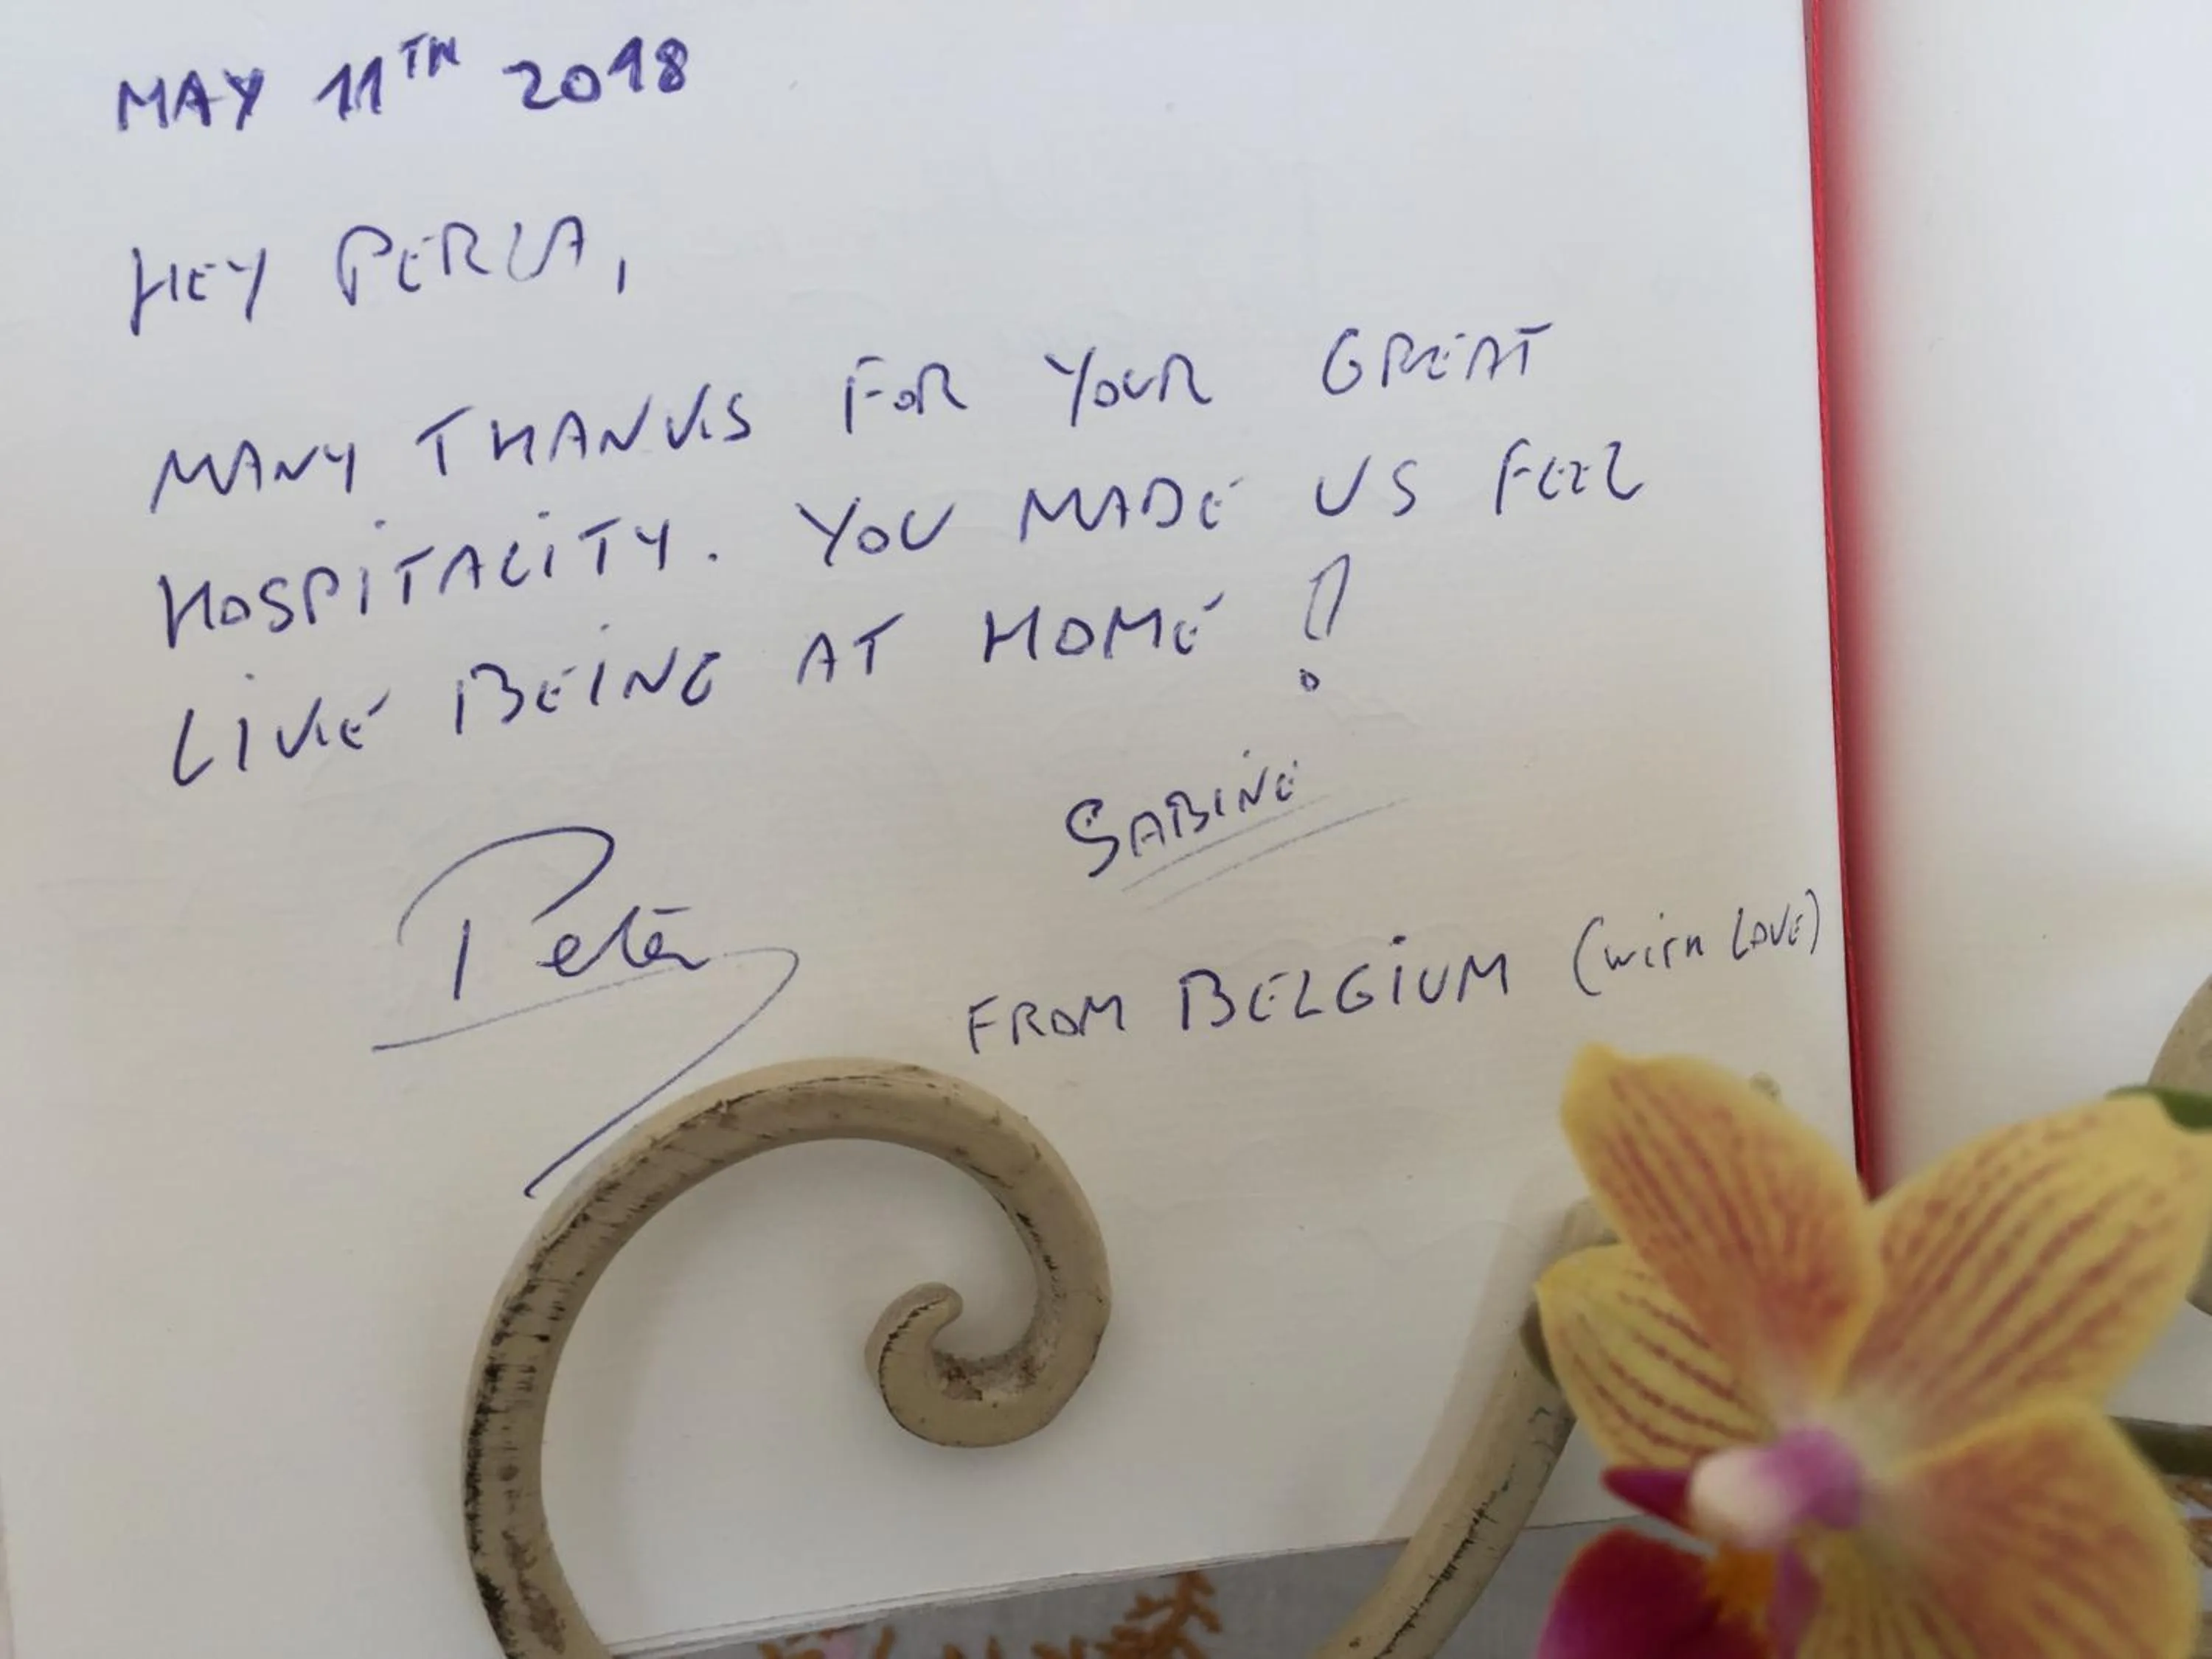 MAY 11TH 2018
HEY PERLA,
MANY THANKS FOR YOUR GREAT
HOSPITALITY. YOU MADE US FEEL
LIKE BEING AT HOME!
SABINE
Peter
FROM BELGIUM (WITH LOVE)